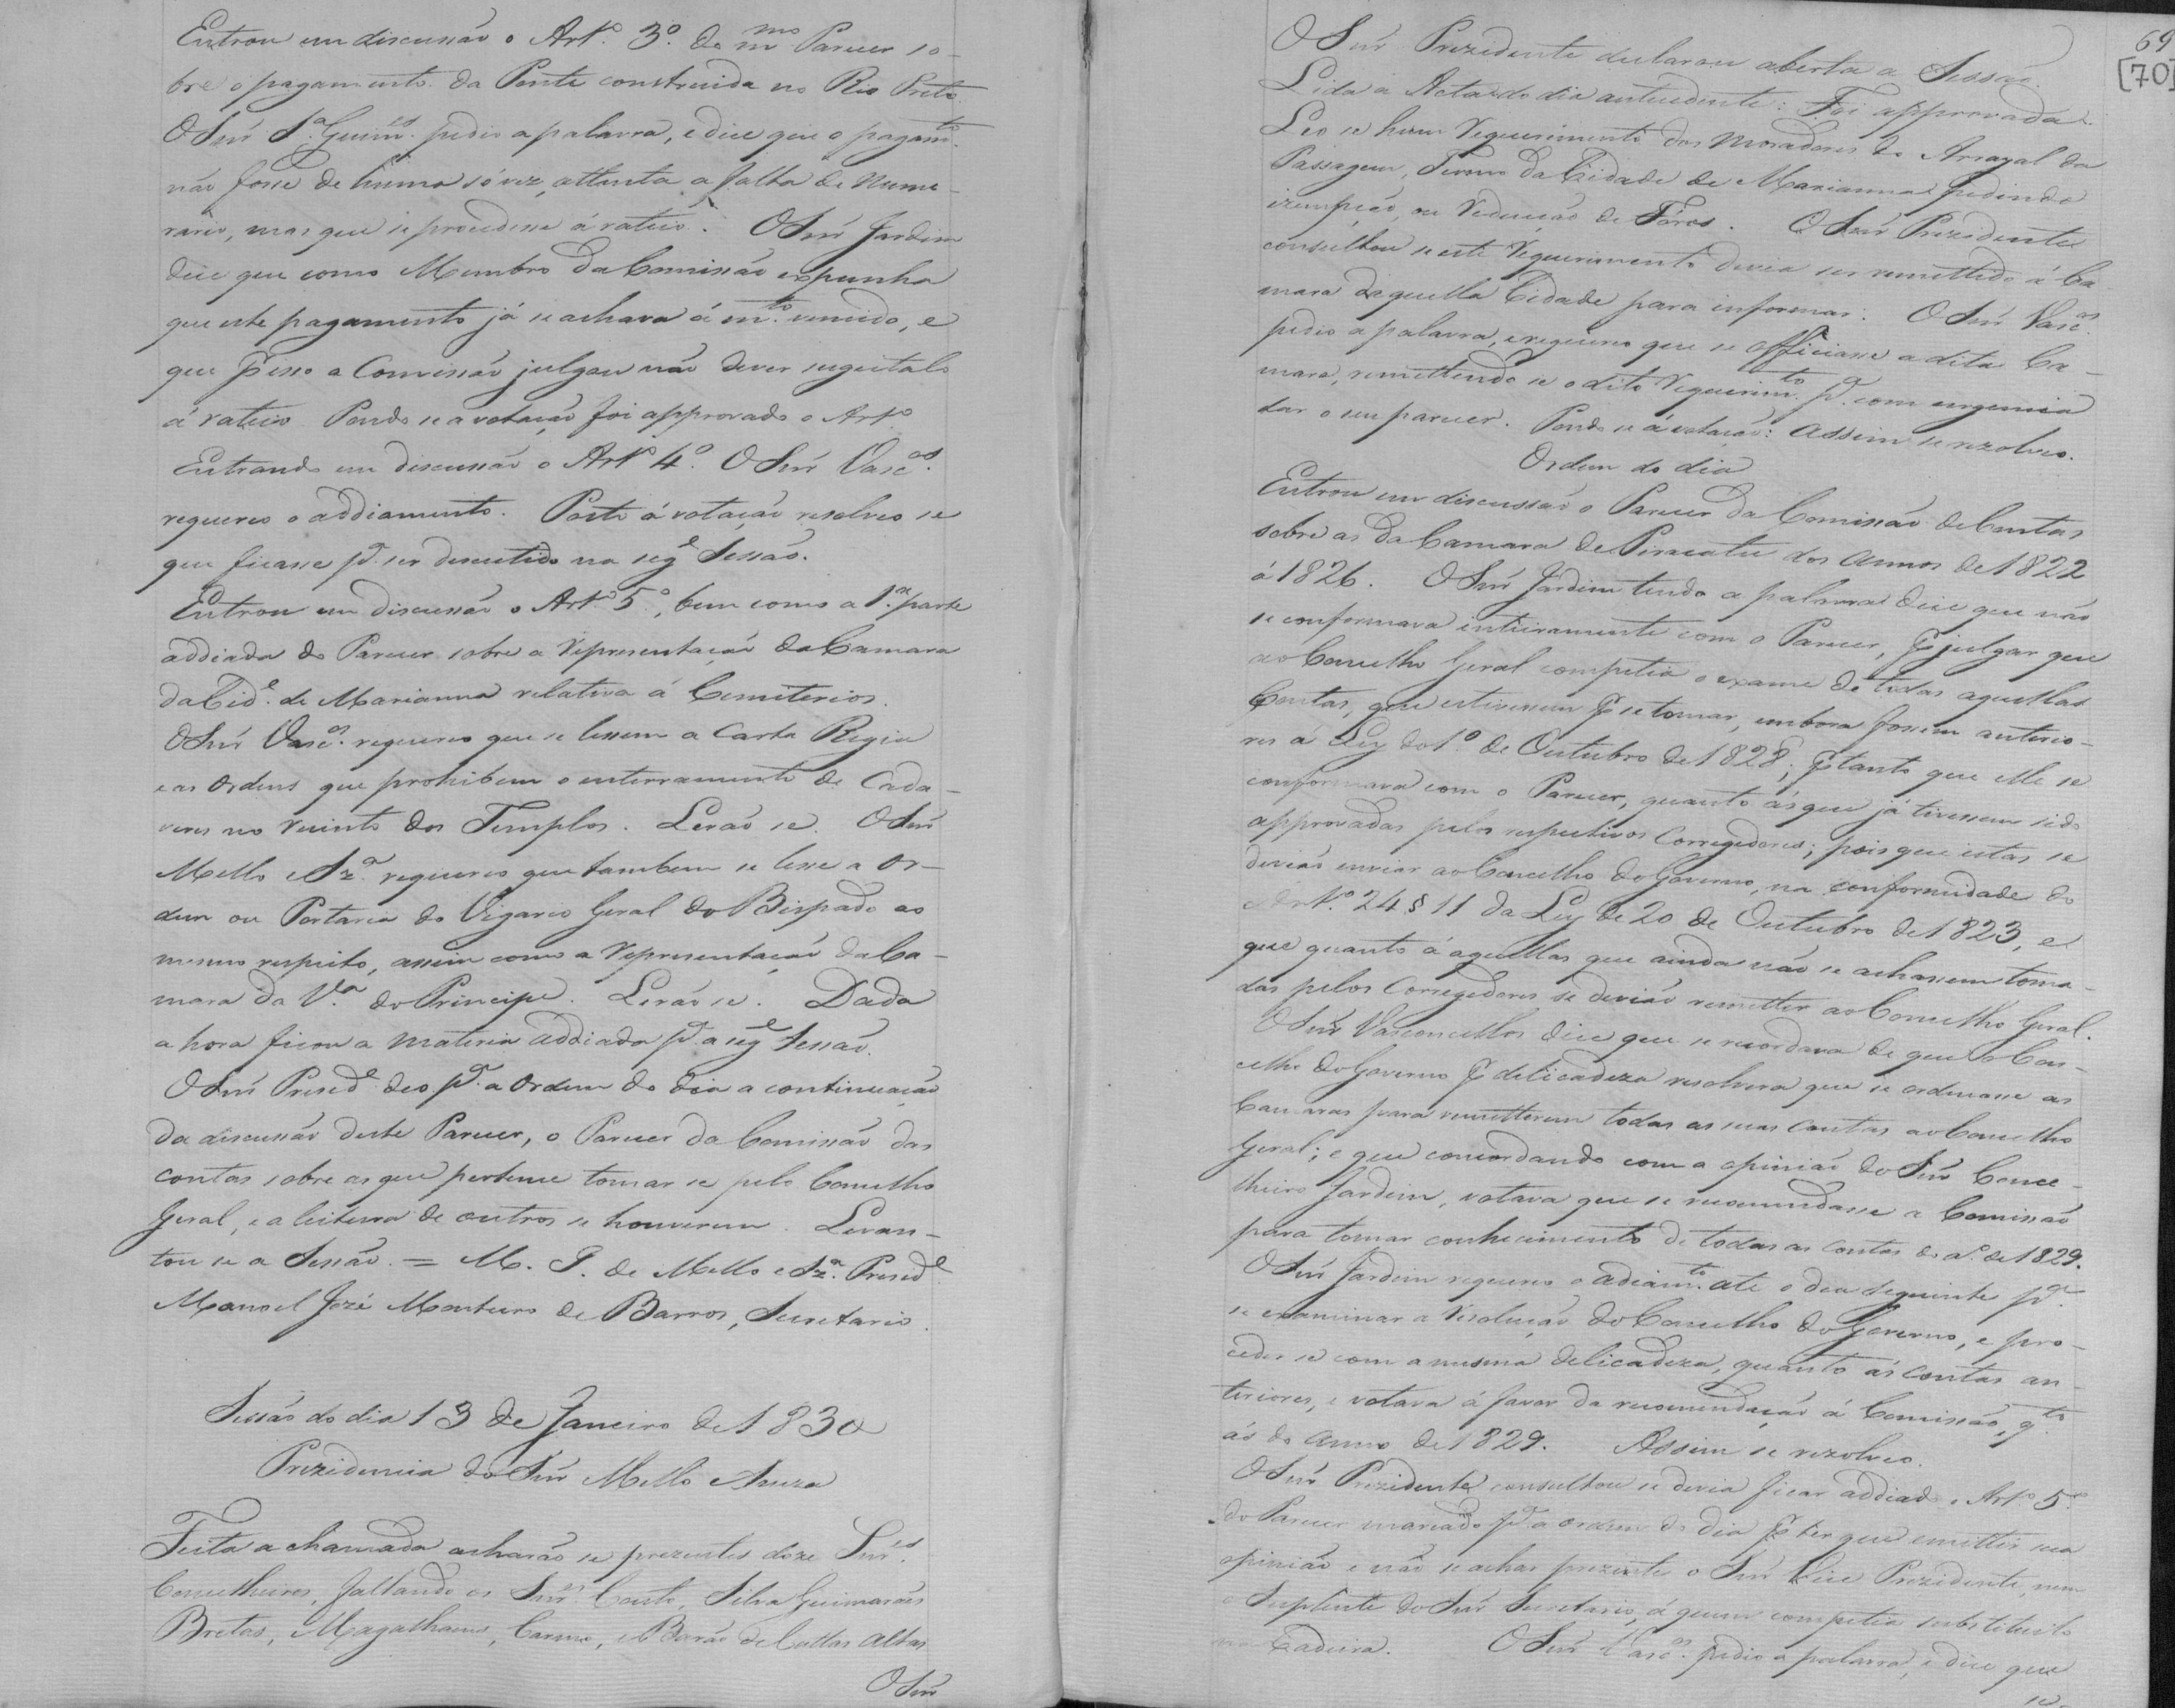 Entrou em discussão o Artº 3º do mmo Parecer so-
bre o pagamento da Ponte construida no Rio Preto.
O Snr Sª Guimes pedio a palavra, e dice que o pagamto
não fosse de huma só vez, attenta a falta de Nume-
rario, mas que se procedesse á rateio. O Snr Jardim
dice que como Membro da Comissão expunha
que este pagamento já se achava á mto vencido, e
que pr isso a Comissão julgou não dever sugeitalo
á rateio. Pondo se a votação foi approvado o Artº
Entrando em discussão o Artº 4º. O Snr Vascos
requereo o addiamento. Posto á votação resolveo se
que ficasse pª ser descutido na sege Sessão.
Entrou em discussão o Artº 5º, bem como a 1ª parte
addiada do Parecer sobre a Representação da Camara
da Cide de Marianna relativa á Cemeterios.
O Snr Vascos requereo que se lessem a Carta Regia
e as Ordens que prohibem o enterramento de Cada-
veres no recinto dos Templos. Lerão se. O Snr
Mello e Sza requereo que tambem se lesse a Or-
dem ou Portaria do Vigario Geral do Bispado ao
mesmo respeito, assim como a Representação da Ca-
mara da Vª do Principe. Lerão se. Dada
a hora ficou a materia addiada pª a sege Sessão.
O Snr Preside deo pª a Ordem do dia a continuação
da discussão deste Parecer, o Parecer da Comissão das
contas sobre as que pertence tomar se pelo Concelho
Geral, e a leitura de outros se houverem. Levan-
tou se a Sessão. = M. I. de Mello e Sza Preside
Manoel Jozé Monteiro de Barros, Secretario.
Sessão do dia 13 de Janeiro de 1830
Prezidencia do Snr Mello e Souza
Feita a chamada acharão se prezentes doze Snres
Concelheiros, faltando os Snres Couto, Silva Guimarães
Bretas, Magalhaens, Carmo, e Barão de Cattas Altas
O Snr
69
[70]
O Snr Prezidente declarou aberta a Sessão.
Lida a Acta do dia antecedente: Foi approvada.
Leo se hum requerimento dos Moradores do Arrayal da
Passagem, Termo da Cidade de Marianna pedindo
izempção, ou reducção de Fóros. O Snr Prezidente
consultou se este requerimento devia ser remettido á Ca
mara daquella Cidade para informar. O Snr Vascos
pedio a palavra, e requereo que se officiasse a dita Ca-
mara, remettendo se o dito requerimto pª com urgencia
dar o seu parecer. Pondo se á votação: Assim se rezolveo.
Ordem do dia
Entrou em discussão o Parecer da Comissão de Contas
sobre as da Camara de Paracatu dos annos de 1822
á 1826. O Snr Jardim tendo a palavra dice que não
se conformava inteiramente com o Parecer, pr julgar que
ao Concelho Geral competia o exame de todas aquellas
Contas, que estivessem pr se tomar, embora fossem anterio-
res á Ley do 1º de Outubro de 1828; prtanto que elle se
conformava com o Parecer, quanto ás que já tivessem sido
approvadas pelos respectivos Corregedores; pois que estas se
devião enviar ao Concelho do Governo, na conformidade do
Artº 24 § 11 da Ley de 20 de Outubro de 1823, e
que quanto á aquellas que ainda não se achassem toma-
das pelos Corregedores se devião remetter ao Concelho Geral.
O Snr Vasconcellos dice que se recordava de que o Con-
celho do Governo pr delicadeza resolvera que se ordenasse as
Camaras para remetterem todas as suas Contas ao Concelho
Geral; e que concordando com a opinião do Snr Conce-
lheiro Jardim, votava que se recomendasse a Comissão
para tomar conhecimento de todas as contas do aº de 1829.
O Snr Jardim requereo o adiamto até o dia seguinte pª
se examinar a Resolução do Concelho do Governo, e pro-
ceder se com a mesma delicadeza, quanto ás contas an-
teriores, e votava á favor da recomendação á Comissão, qto
ás do anno de 1829. Assim se rezolveo.
O Snr Prezidente consultou se devia ficar addiado o Artº 5º
do Parecer marcado pª a ordem do dia pr ter que emittir sua
opinião e não se achar prezente o Snr Vice Prezidente, nem
o Suplente do Snr Secretario, á quem competia substituilo
na Cadeira. O Snr Vascos pedio a palavra, e dice que
se